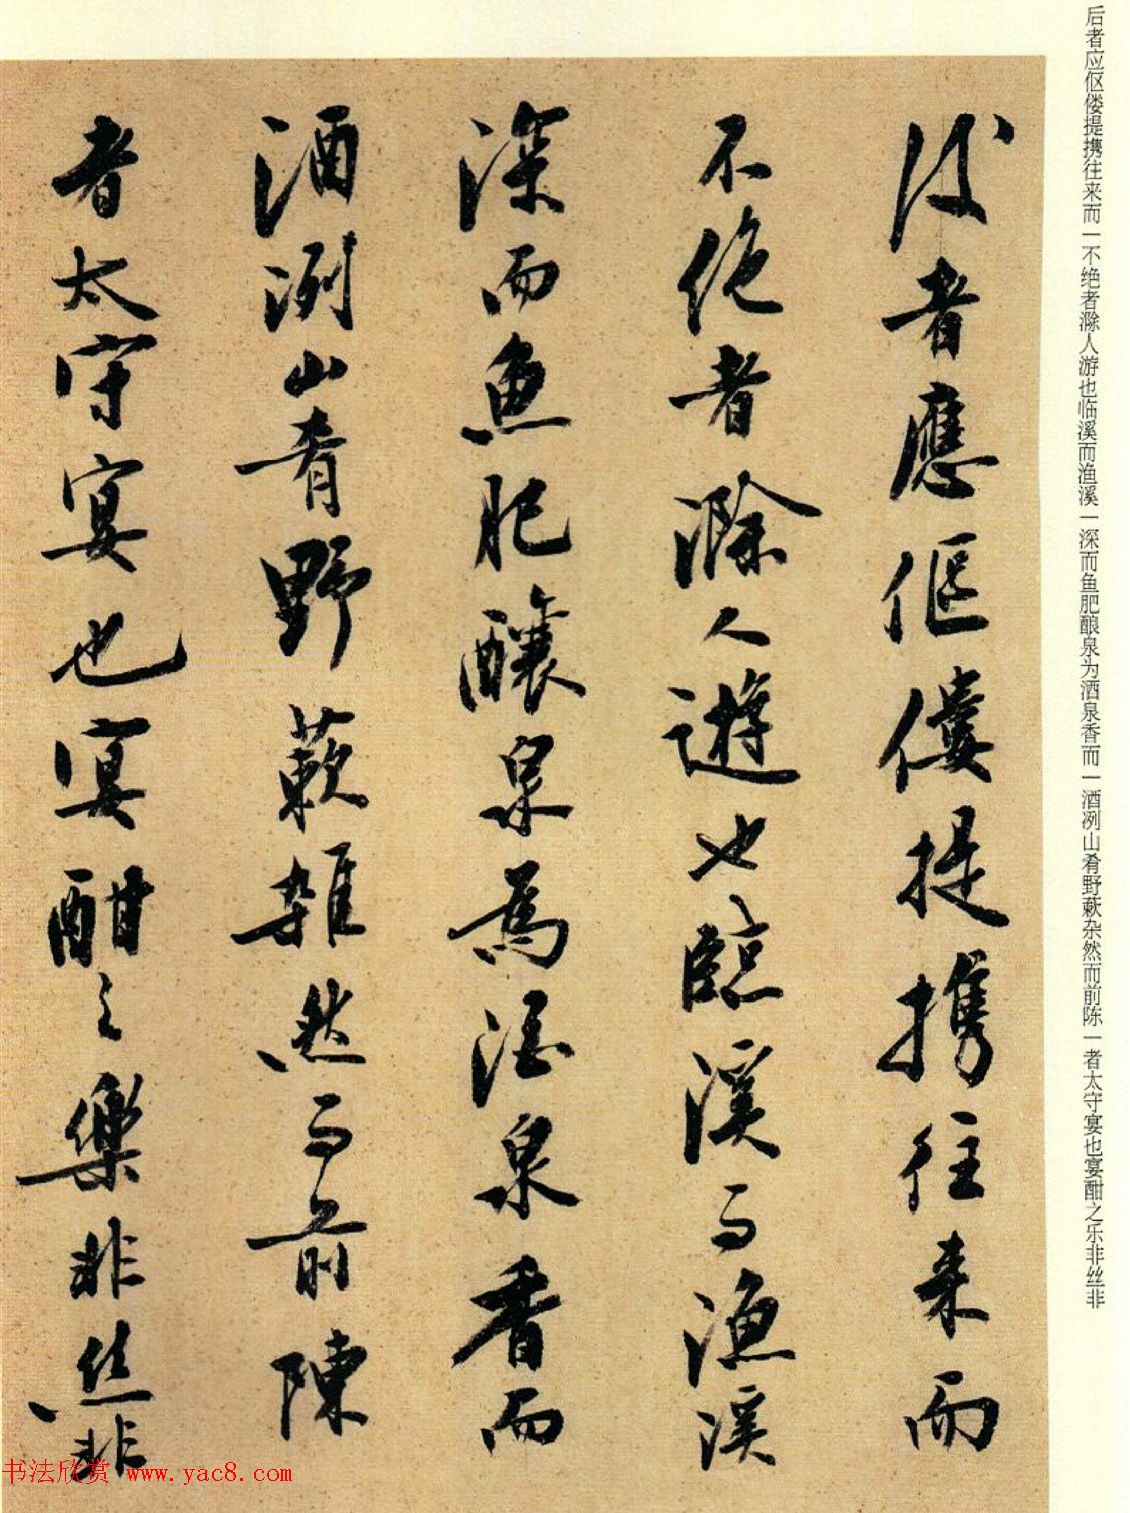 后者应伛偻提携往来而一不绝者滁人游也临溪而渔溪一深而鱼肥酿泉为酒泉香而一酒冽山肴野蔌杂然而前陈一者太守宴也宴酣之乐非丝非
後者應傴僂提攜往来而
不绝者滁人遊也臨溪而漁溪
深而魚肥釀泉為酒泉香而
酒洌山肴野蔌雜然而前陳
者太守宴也宴酣之樂非丝非
书法欣赏 www.yac8.com